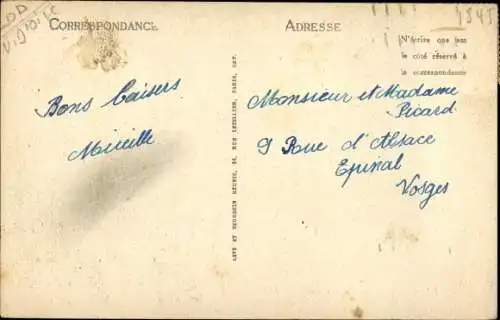 CORRESPONDANCE
ADRESSE
N'écrire que sur
le côté réservé à
la correspondance
Bons baisers
Mireille
Monsieur et Madame
Picard
9 Rue d'Alsace
Epinal
Vosges
LÉVY ET NEURDEIN RÉUNIS, 44, RUE LETELLIER, PARIS, IMP.